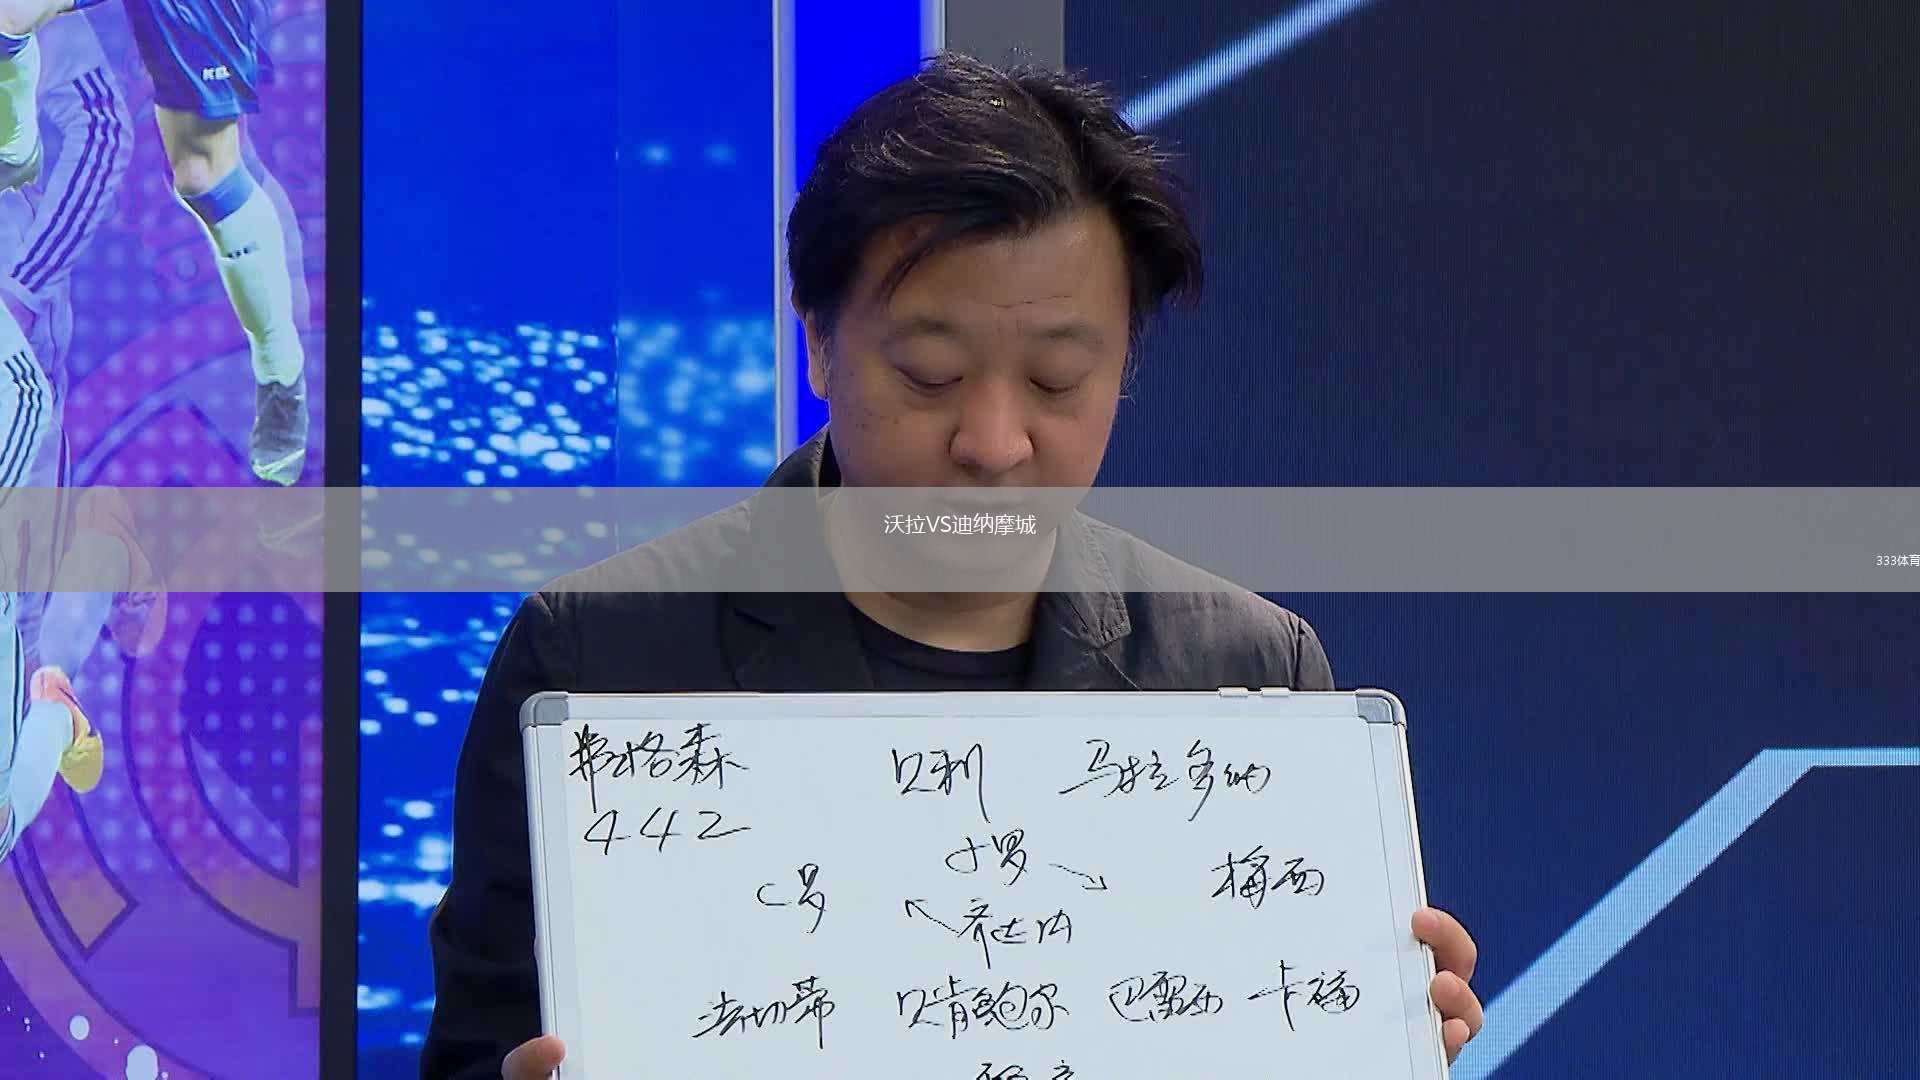 沃拉VS迪纳摩城
333体育
弗格森 贝利 马拉多纳
442
小罗
C罗 梅西
齐达内
法切蒂 贝肯鲍尔 巴雷西 卡福